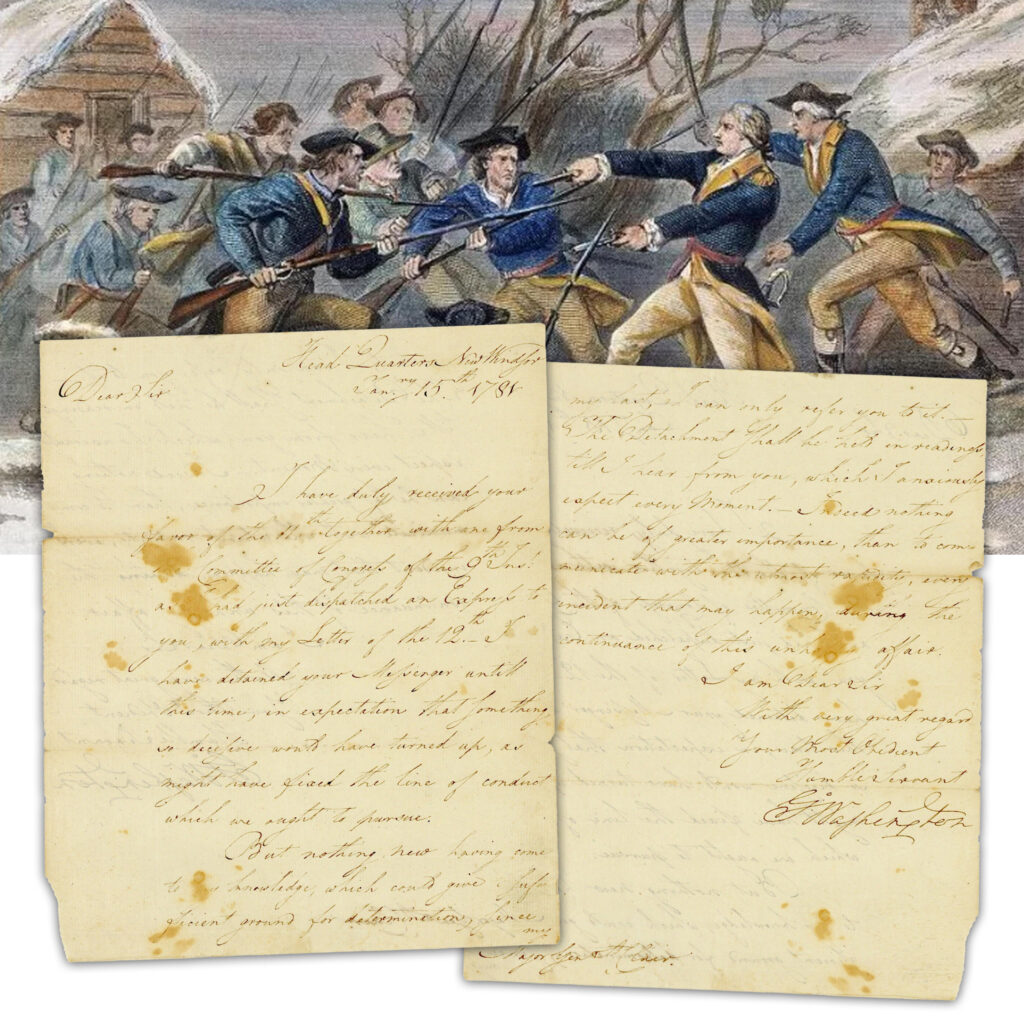 Head Quarters New Windsor
Jan.ry 15.th 1781
Dear Sir
I have duly received your
favor of the 11th together with one from
Committee of Congress of the 9th Ins.t
as had just dispatched an Express to
you, with my Letter of the 12th — I
have detained your Messenger untill
this time, in expectation that something
so decisive would have turned up, as
might have fixed the line of conduct
which we ought to pursue.
But nothing new having come
to my knowledge, which could give suf
ficient ground for determination, since
my
my last, I can only refer you to it.
The Detachment shall be held in readiness
till I hear from you, which I anxiously
expect every Moment. — Indeed nothing
can be of greater importance, than to com
municate with the utmost rapidity, every
incident that may happen, during the
continuance of this unhappy affair.
I am Dear Sir
With very great regard
Your Most Obedient
Humble Servant
G:o Washington
Major Gen St Clair.